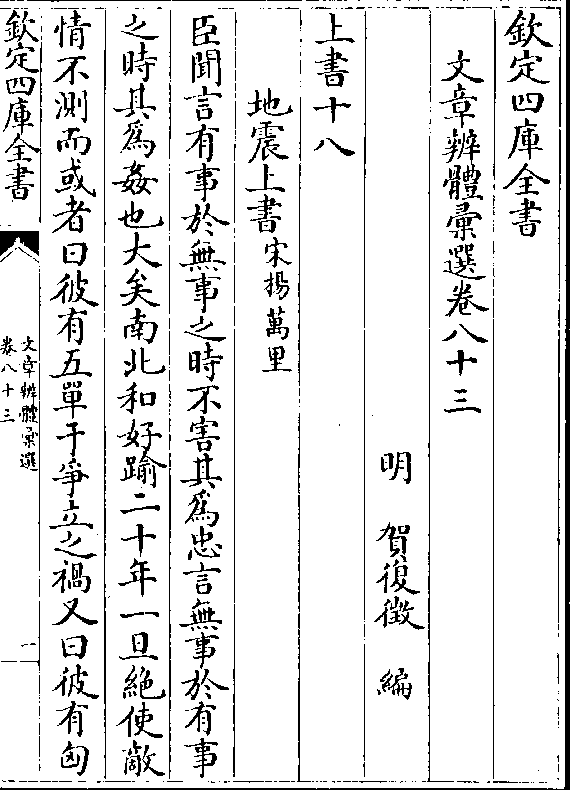 欽定四庫全書
文章辨體彙選卷八十三
明 賀復徵 編
上書十八
地震上書宋揚萬里
臣聞言有事於無事之時不害其為忠言無事於有事
之時其為姦也大矣南北和好踰二十年一旦絶使敵
情不測而或者曰彼有五單于爭立之禍又曰彼有匈
欽定四庫全書
文章辨體彙選
卷八十三
一